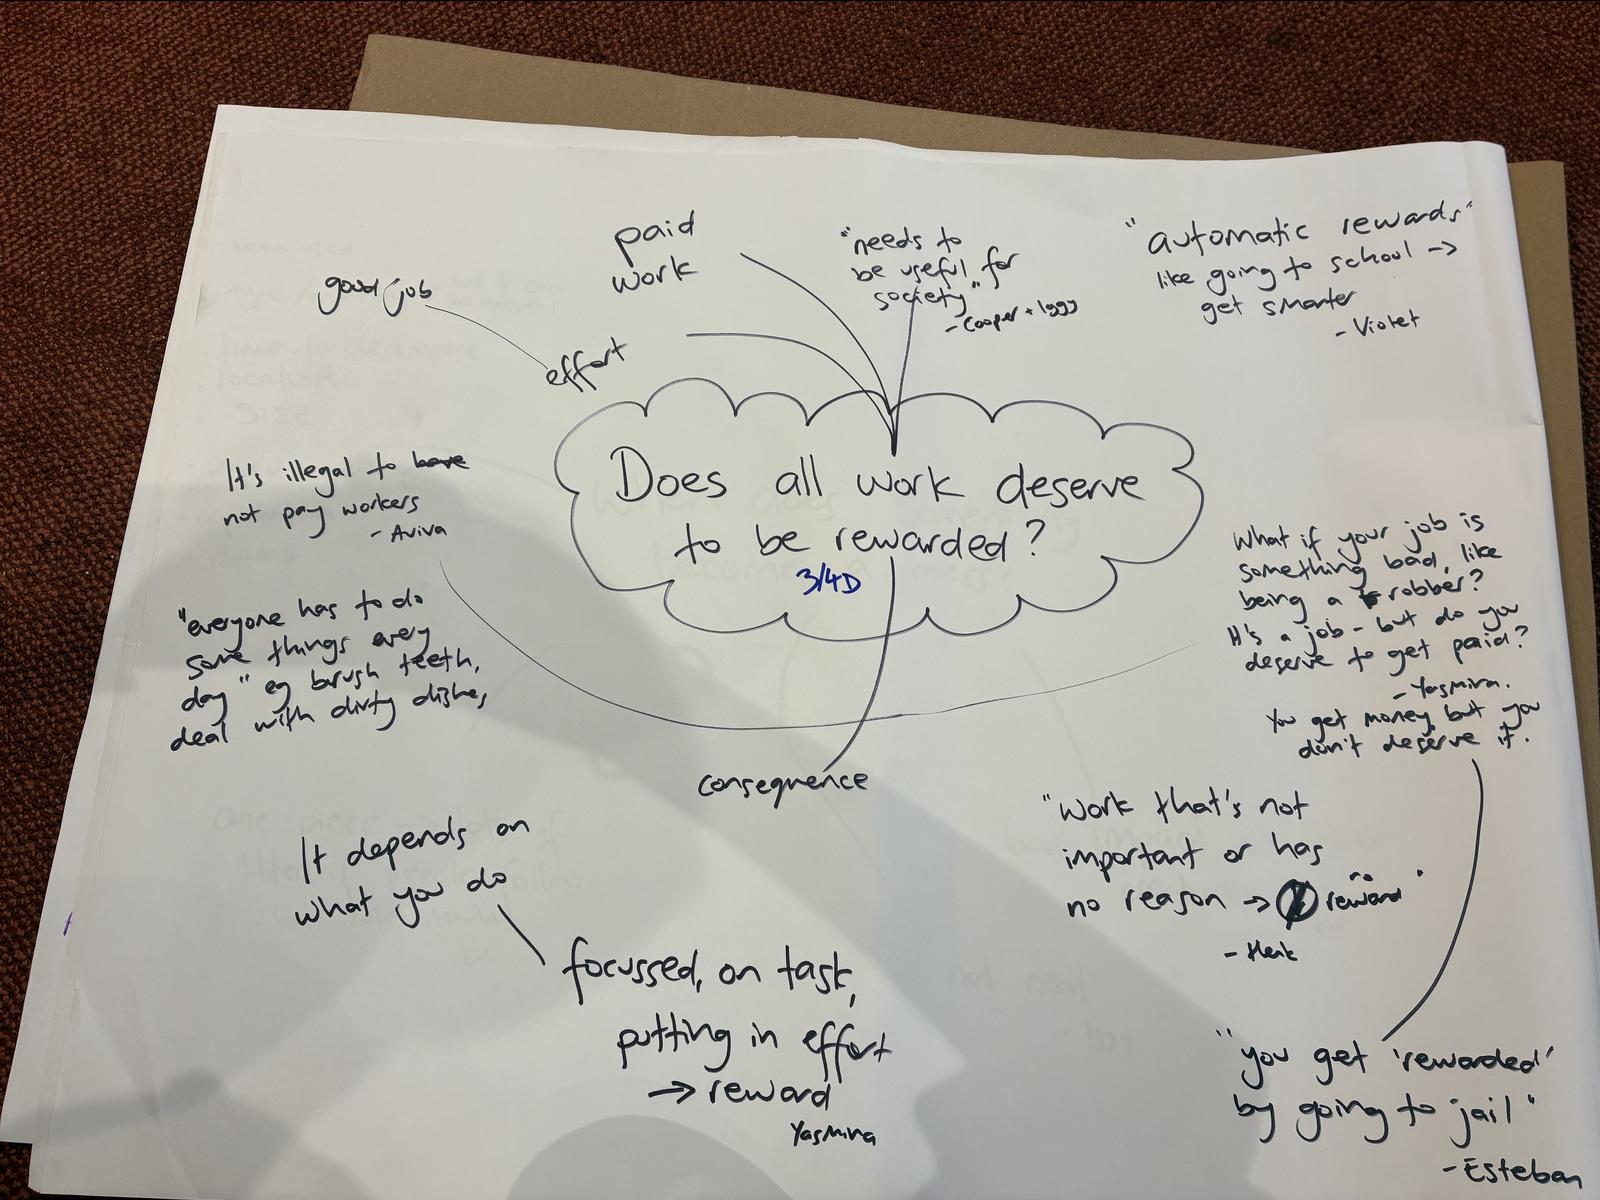 paid
work
good job
effort
"needs to
be useful for
society"
- Cooper + Iggy
"automatic rewards"
like going to school →
get smarter
- Violet
Does all work deserve
to be rewarded?
3/4D
It's illegal to have
not pay workers
- Aviva
"everyone has to do
some things every
day" eg brush teeth,
deal with dirty dishes,
What if your job is
something bad, like
being a robber?
It's a job - but do you
deserve to get paid?
- Yasmina.
You get money, but you
don't deserve it.
consequence
It depends on
what you do
focussed, on task,
putting in effort
→ reward
Yasmina
"work that's not
important or has
no reason → no reward"
"you get 'rewarded'
by going to jail"
- Esteban